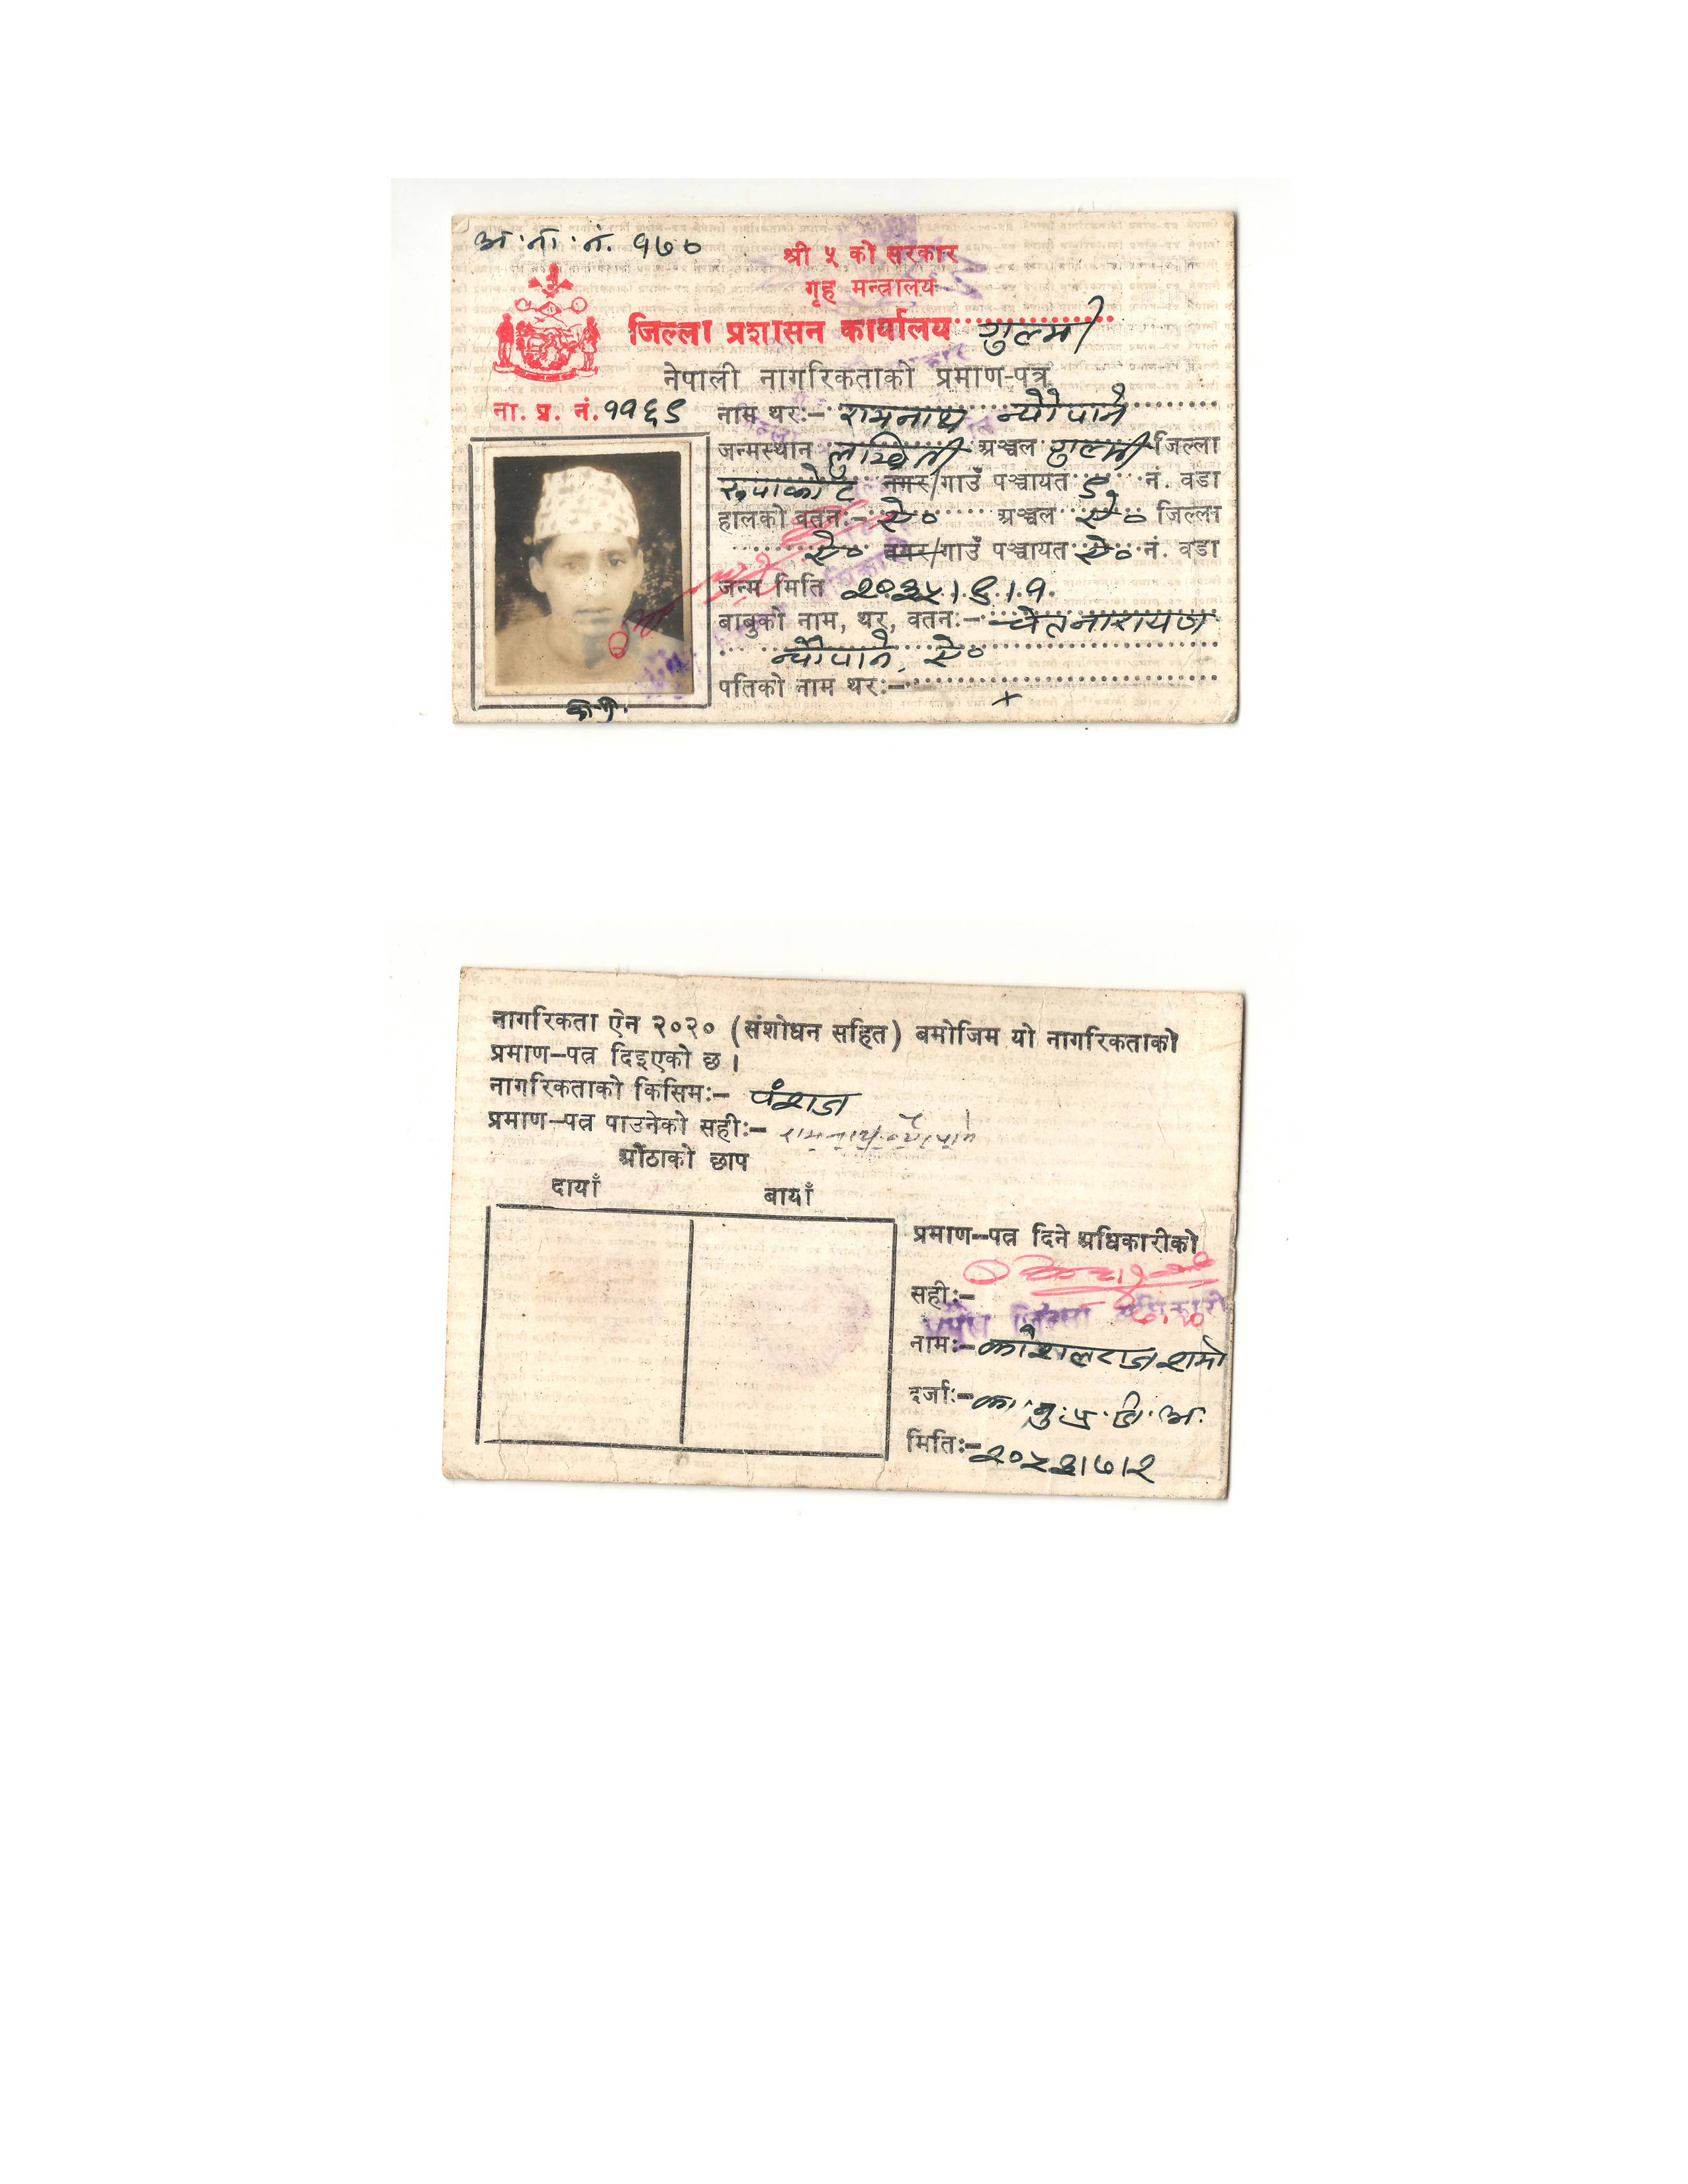 अ. ना. नं. १७०
श्री ५ को सरकार
गृह मन्त्रालय
जिल्ला प्रशासन कार्यालय गुल्मी
नेपाली नागरिकताको प्रमाण-पत्र
ना. प्र. नं. ११६९
नाम थर:- रामनाथ न्यौपाने
जन्मस्थान लुम्बिनी अञ्चल गुल्मी जिल्ला
रुपाकोट नगर/गाउँ पञ्चायत ९ नं. वडा
हालको वतन:- ऐ० अञ्चल ऐ० जिल्ला
ऐ० नगर/गाउँ पञ्चायत ऐ० नं. वडा
जन्म मिति २०३५।९।१
बाबुको नाम, थर, वतन:- चेतनारायण
न्यौपाने, ऐ०
पतिको नाम थर:- ×
नागरिकता ऐन २०२० (संशोधन सहित) बमोजिम यो नागरिकताको
प्रमाण-पत्र दिइएको छ।
नागरिकताको किसिम:- वंशज
प्रमाण-पत्र पाउनेको सही:- रामनाथ न्यौपाने
औंठाको छाप
दायाँ बायाँ
प्रमाण-पत्र दिने अधिकारीको
सही:-
जिल्ला अधिकारी
नाम:- कोशलराज शर्मा
दर्जा:- का. मु. प्र. जि. अ.
मिति:- २०५३।७।२